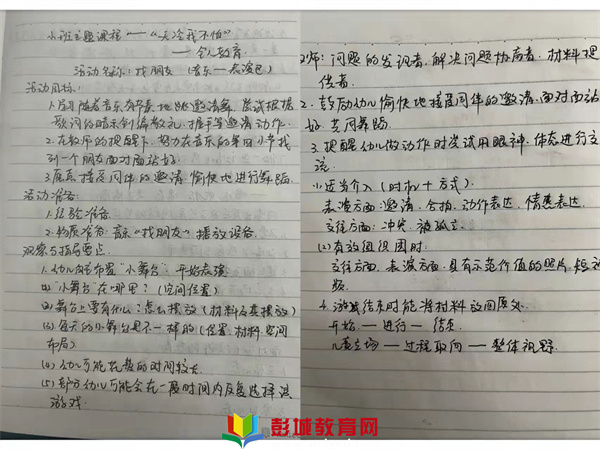 小班主题课程“——“天冷我不怕”
——个人教育
活动名称：找朋友（音乐—表演包）
活动目标：
1.尝试随着音乐有节奏地跳邀请舞，尝试根据
歌词的暗示创编敬礼、握手等邀请动作
2.在教师的提醒下，努力在音乐的单旧小节找
到一个朋友面对面站好
3.愿意接受同伴的邀请，愉快地进行舞蹈
活动准备：
1.经验准备
2.物质准备：音乐《找朋友》播放设备
观察与指导要点
1.幼儿自主布置“小舞台”，开始表演
(1)“小舞台”在哪里？（空间位置）
(2)舞台上要有什么？怎么摆放（材料及其摆放）
(3)每天的小舞台是不一样的（位置、材料、空间
布局）
(4)幼儿可能在装的时间较长
(5)部分幼儿可能会在一段时间内反复选择该
游戏
师：问题的发识者，解决问题协商者，材料提
供者
2.鼓励幼儿愉快地接受同伴的邀请，面对面站
好，共同舞蹈
3.提醒幼儿做动作时尝试用眼神、体态进行交
流
(1)适当介入（时机+方式）
表演方面：邀请、合拍、动作表达、情感表达
交往方面：冲突、被孤立
(2)有效组织回时
交往方面、表演方面，具有示范价值的照片、短视
频
4.游戏结束时能将材料放回原处
开始——进行——结束
儿童立场——过程取向——整体视野
彭城教育网